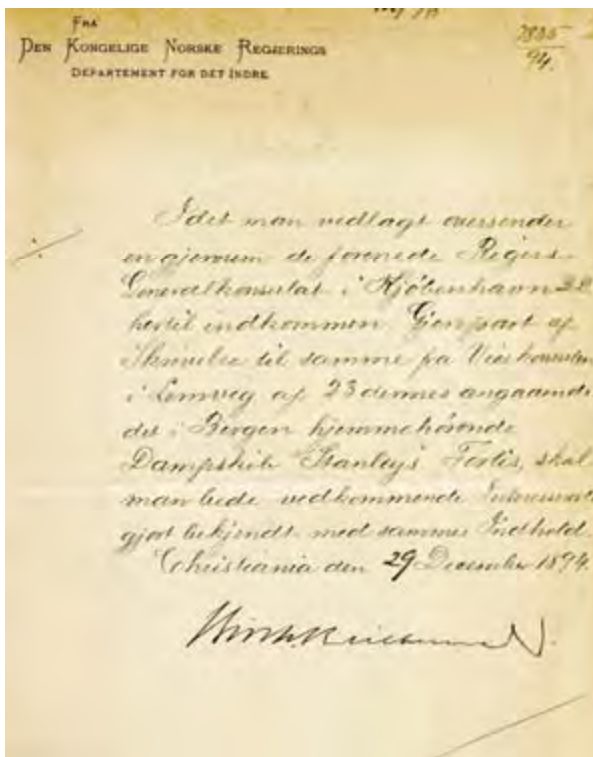 FRA
DEN KONGELIGE NORSKE REGJERINGS
DEPARTEMENT FOR DET INDRE.
94.
Idet man vedlagt oversender
en gjennem de forenede Rigers
Generalkonsulat i Kjöbenhavn
hertil indkommen Gjenpart af
Skrivelse til samme fra Vicekonsulen
i Lemvig af 23 dennes angaaende
det i Bergen hjemmehörende
Dampskib Stanley's Fortis, skal
man bede vedkommende
gjort bekjendt med sammes Indhold.
Christiania den 29 December 1894.